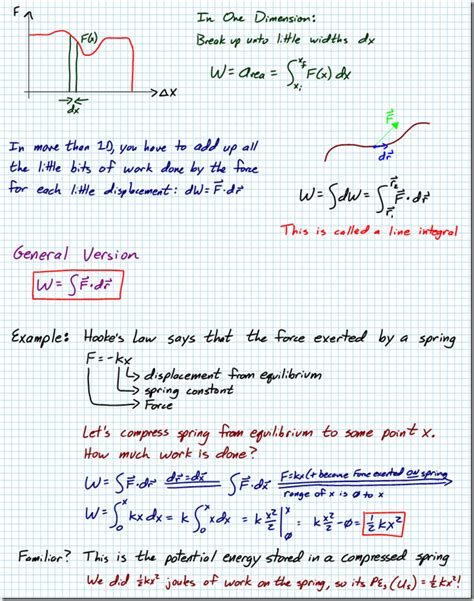 F
F(x)
dx
ΔX
In One Dimension:
Break up into little widths dx
W = area = ∫_{x_i}^{x_f} F(x) dx
In more than 1D, you have to add up all
the little bits of work done by the force
for each little displacement: dW = F⃗·dr⃗
F⃗
dr⃗
W = ∫dW = ∫_{r⃗_1}^{r⃗_2} F⃗·dr⃗
This is called a line integral
General Version
W = ∫F⃗·dr⃗
Example: Hooke's Law says that the force exerted by a spring
F = -kx
displacement from equilibrium
spring constant
Force
Let's compress spring from equilibrium to some point x.
How much work is done?
W = ∫F⃗·dr⃗ dr⃗=dx⃗ ∫F⃗·dx⃗ F=kx (+ because Force exerted ON spring
range of x is 0 to x
W = ∫_0^x kx dx = k∫_0^x x dx = k x²/2 |_0^x = k x²/2 - 0 = ½kx²
Familiar? This is the potential energy stored in a compressed spring
We did ½kx² joules of work on the spring, so its PE_s (U_s) = ½kx²!